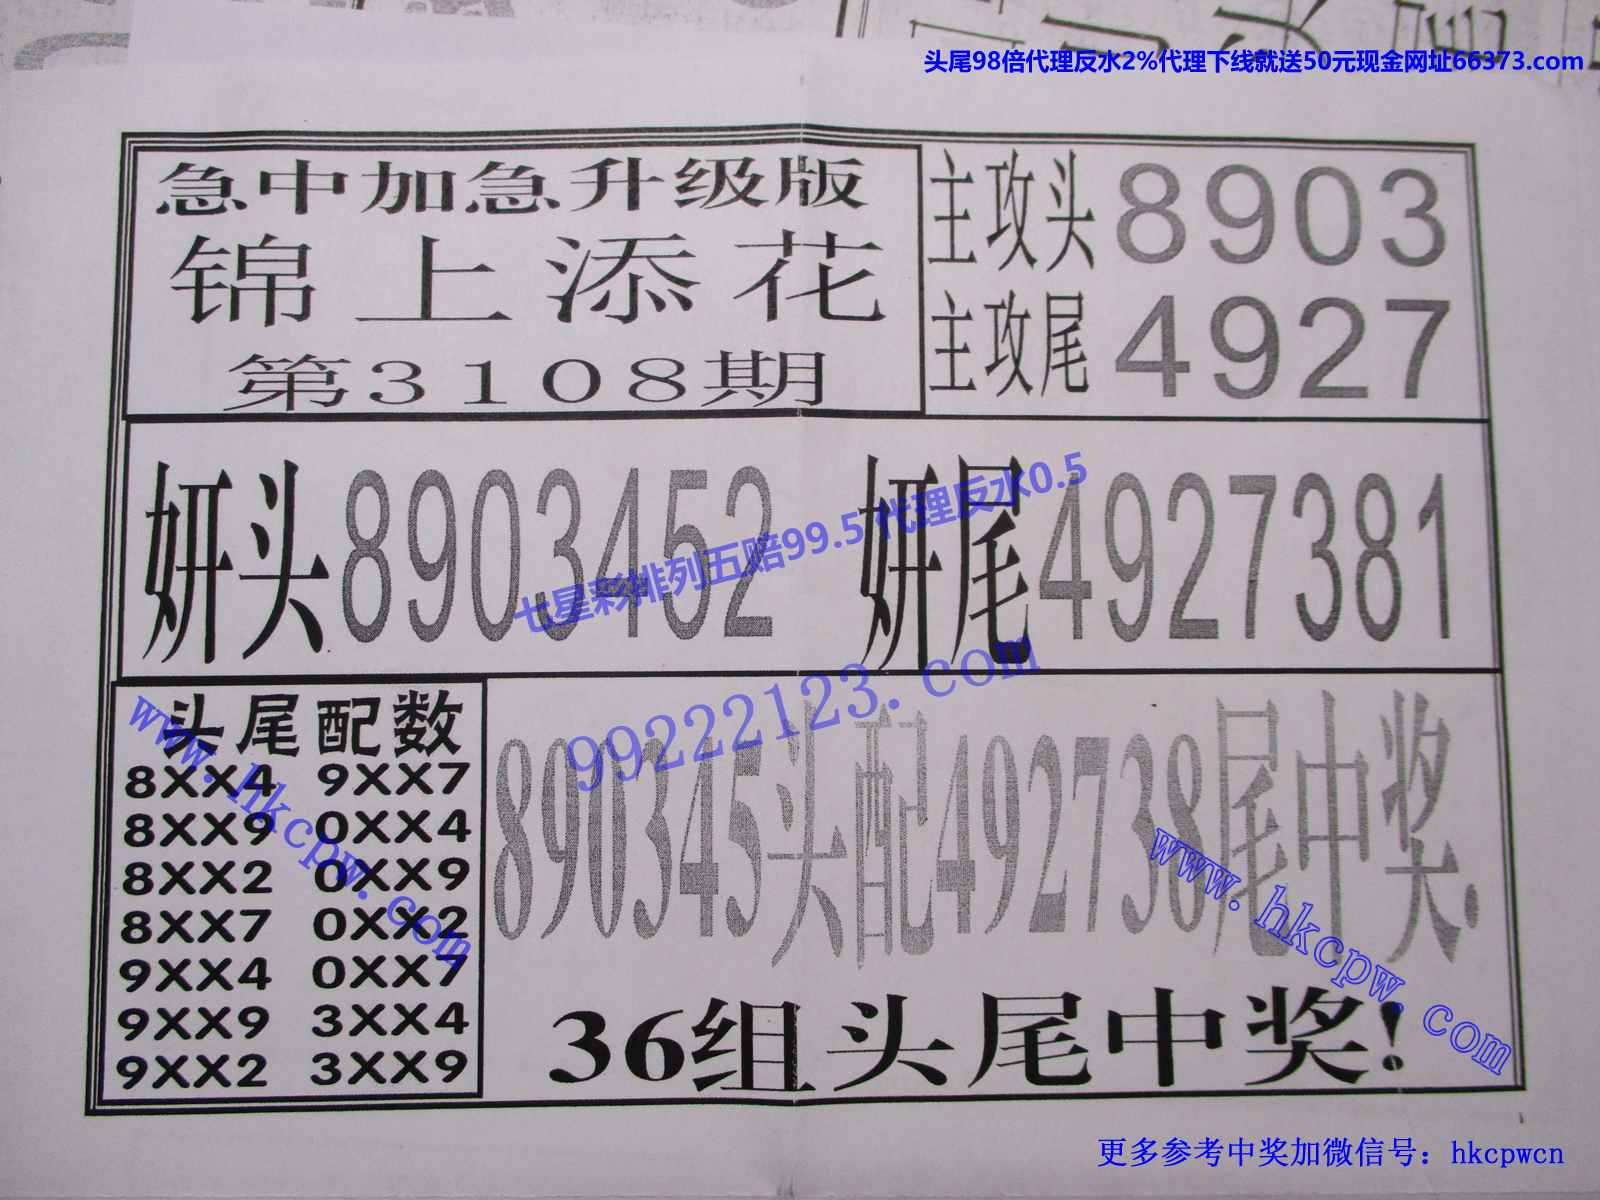 头尾98倍代理反水2%代理下线就送50元现金网址66373.com
急中加急升级版
锦上添花
第3108期
主攻头8903
主攻尾4927
妍头8903452 妍尾4927381
七星彩排列五赔99.5 代理反水0.5
99222123.com
头尾配数
8XX4 9XX7
8XX9 0XX4
8XX2 0XX9
8XX7 0XX2
9XX4 0XX7
9XX9 3XX4
9XX2 3XX9
www.hkcpw.com
890345头配492738尾中奖.
www.hkcpw.com
36组头尾中奖!
更多参考中奖加微信号：hkcpwcn